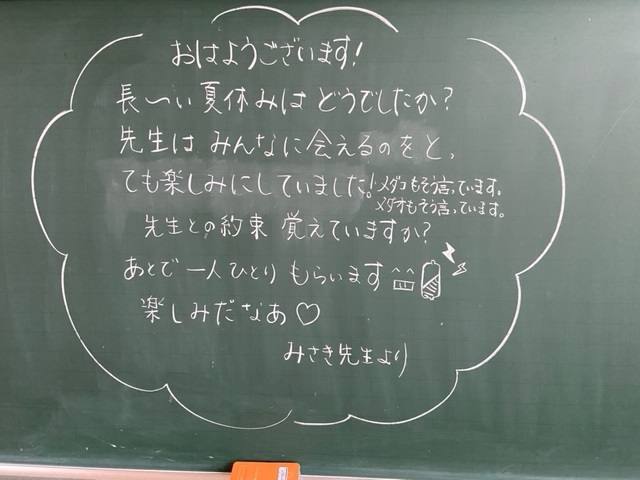 おはようございます!
長〜い夏休みはどうでしたか?
先生はみんなに会えるのをと、
ても楽しみにしていました!
メダコもそう言っています。
メダオもそう言っています。
先生との約束 覚えていますか?
あとで 一人ひとり もらいます
楽しみだなあ♡
みさき先生より